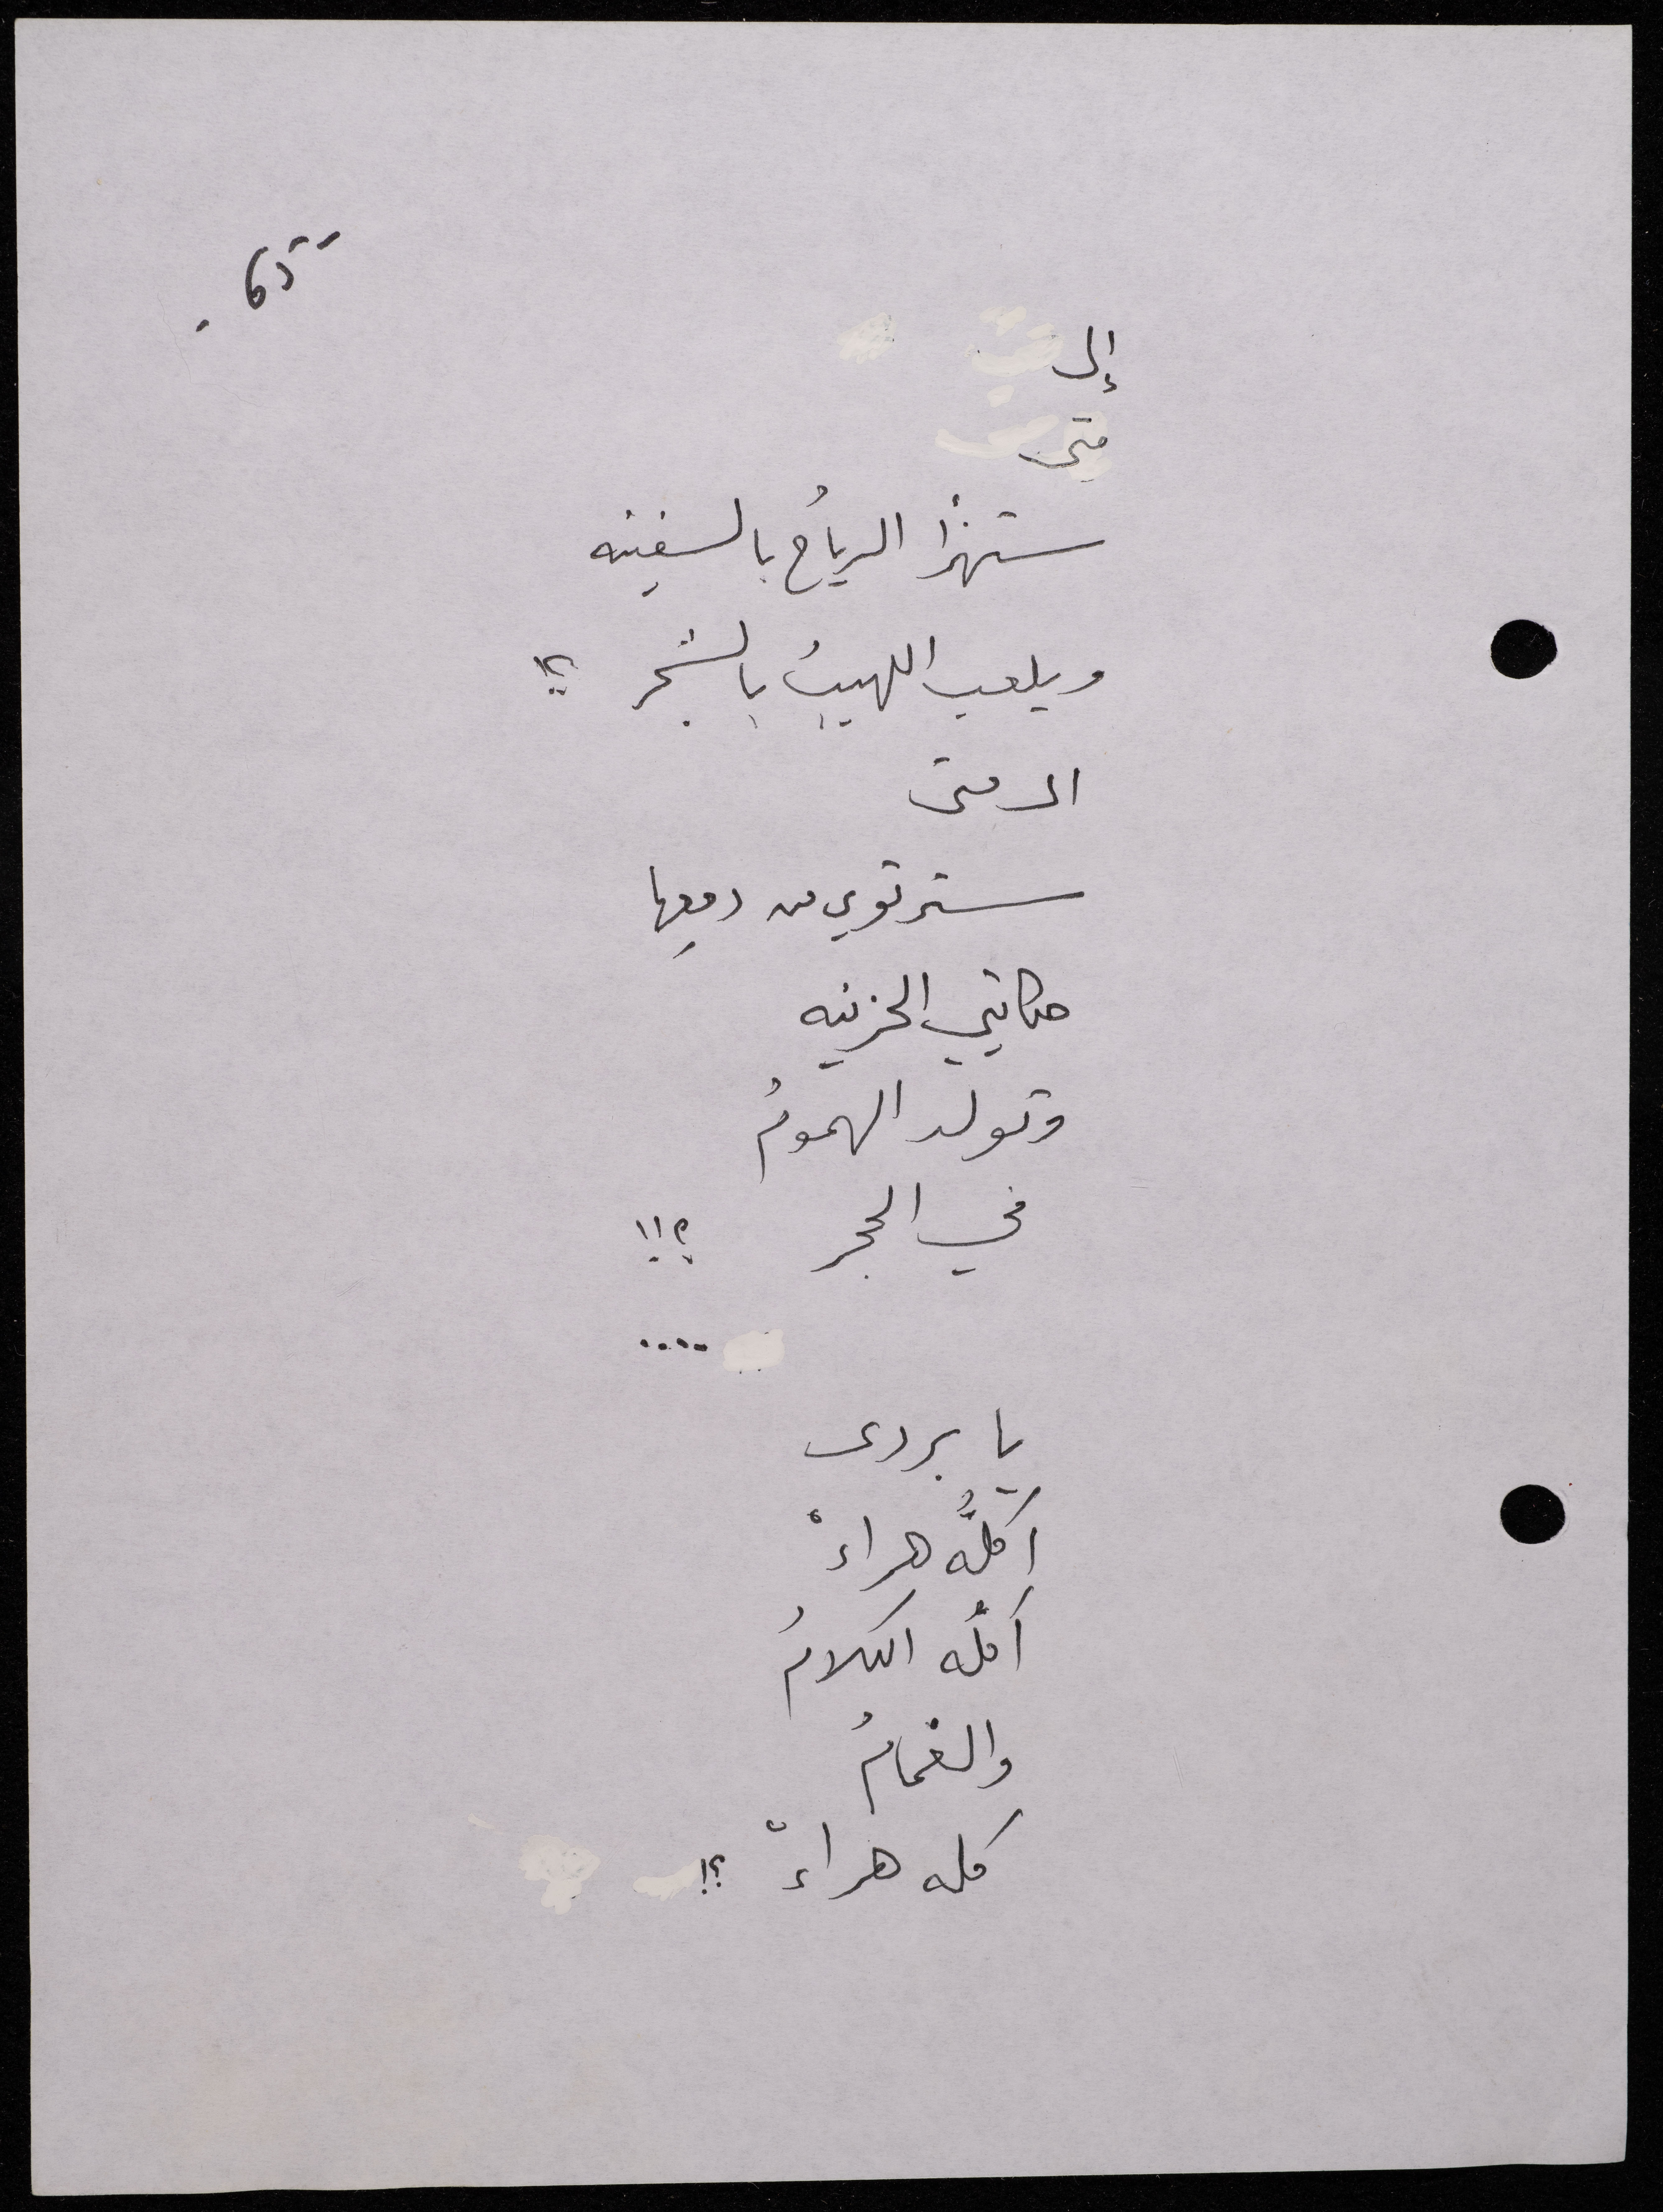 إلى
متى
ستهزأ الرياحُ بالسفينه
ويلعب اللهيبُ بالشجر ؟!
الى متى
سترتوي من دمعِها
حكايتي الحزينه
وتولد الهمومُ
في الحجر ؟!!
....
يا بردى
اكلُّه هراءْ
أكلُّه الكلامُ
والغمامُ
كله هراءْ ؟!